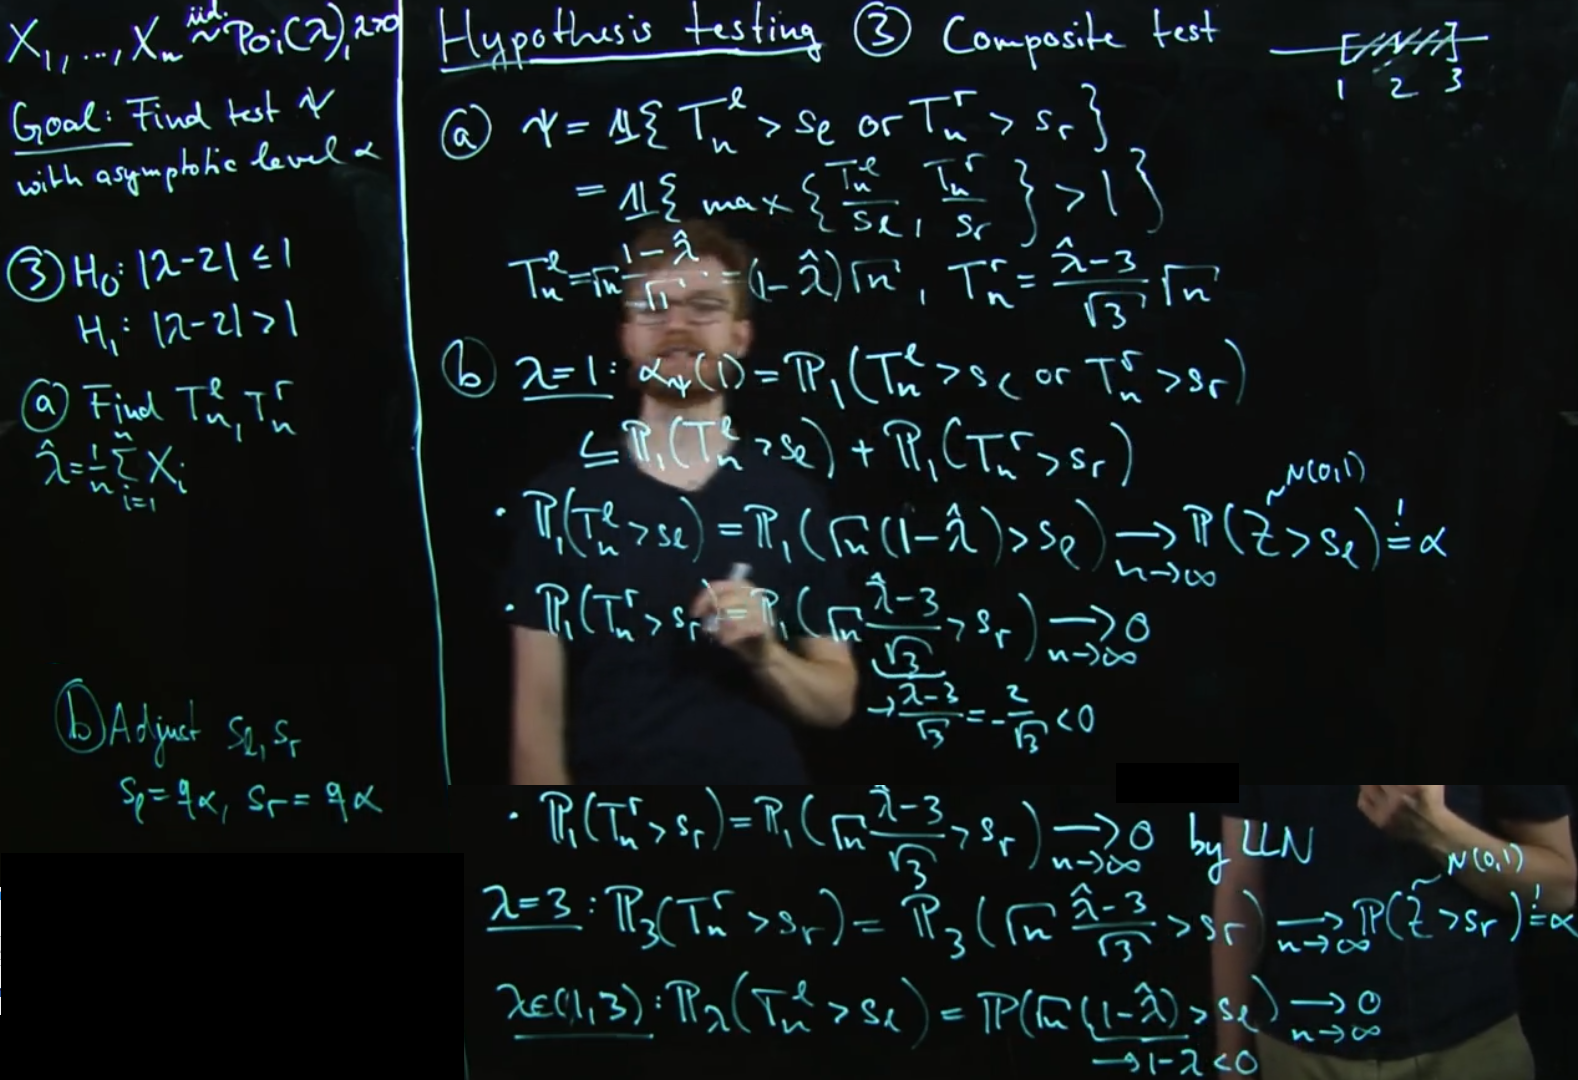 X₁, ..., Xₙ iid ~ Poi(λ), λ>0
Goal: Find test ψ
with asymptotic level α
③ H₀: |λ-2| ≤ 1
H₁: |λ-2| > 1
ⓐ Find Tₙˡ, Tₙʳ
λ̂ = 1/n Σᵢ₌₁ⁿ Xᵢ
ⓑ Adjust sₗ, sᵣ
sₗ = qα, sᵣ = qα
Hypothesis testing ③ Composite test
1 2 3
ⓐ ψ = 𝟙{ Tₙˡ > sₗ or Tₙʳ > sᵣ }
= 𝟙{ max { Tₙˡ/sₗ, Tₙʳ/sᵣ } > 1 }
Tₙˡ = √n (1-λ̂)/√1 = (1-λ̂)√n, Tₙʳ = (λ̂-3)/√3 √n
ⓑ λ=1: α_ψ(1) = ℙ₁(Tₙˡ > sₗ or Tₙʳ > sᵣ)
≤ ℙ₁(Tₙˡ > sₗ) + ℙ₁(Tₙʳ > sᵣ)
~N(0,1)
· ℙ₁(Tₙˡ > sₗ) = ℙ₁(√n (1-λ̂) > sₗ) →n→∞ ℙ(Z > sₗ) != α
· ℙ₁(Tₙʳ > sᵣ) = ℙ₁(√n (λ̂-3)/√3 > sᵣ) →n→∞ 0
→ (λ-3)/√3 = -2/√3 < 0
· ℙ₁(Tₙʳ > sᵣ) = ℙ₁(√n (λ̂-3)/√3 > sᵣ) →n→∞ 0 by LLN
~N(0,1)
λ=3: ℙ₃(Tₙʳ > sᵣ) = ℙ₃(√n (λ̂-3)/√3 > sᵣ) →n→∞ ℙ(Z > sᵣ) != α
λ∈(1,3): ℙλ(Tₙˡ > sₗ) = ℙ(√n (1-λ̂) > sₗ) →n→∞ 0
→ 1-λ < 0